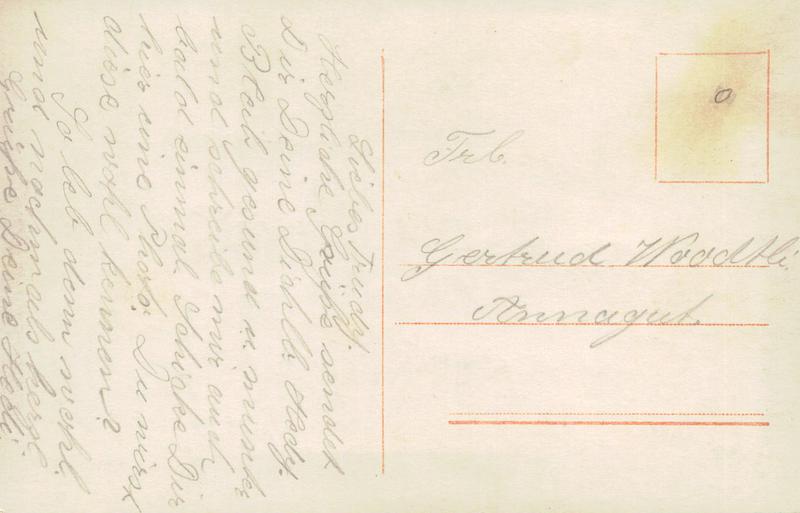 Liebes Trudy.
Herzliche Grüsse sendet
Dir Deine Hedy.
Bleib gesund u. munter
und schreibe mir auch
bald einmal. Schicke Dir
hier eine Photo. Du wirst
diese wohl kennen?
So leb denn wohl
und nochmals herzl.
Grüsse Deine Hedi.
Frl.
Gertrud Woodtli.
Annagut.